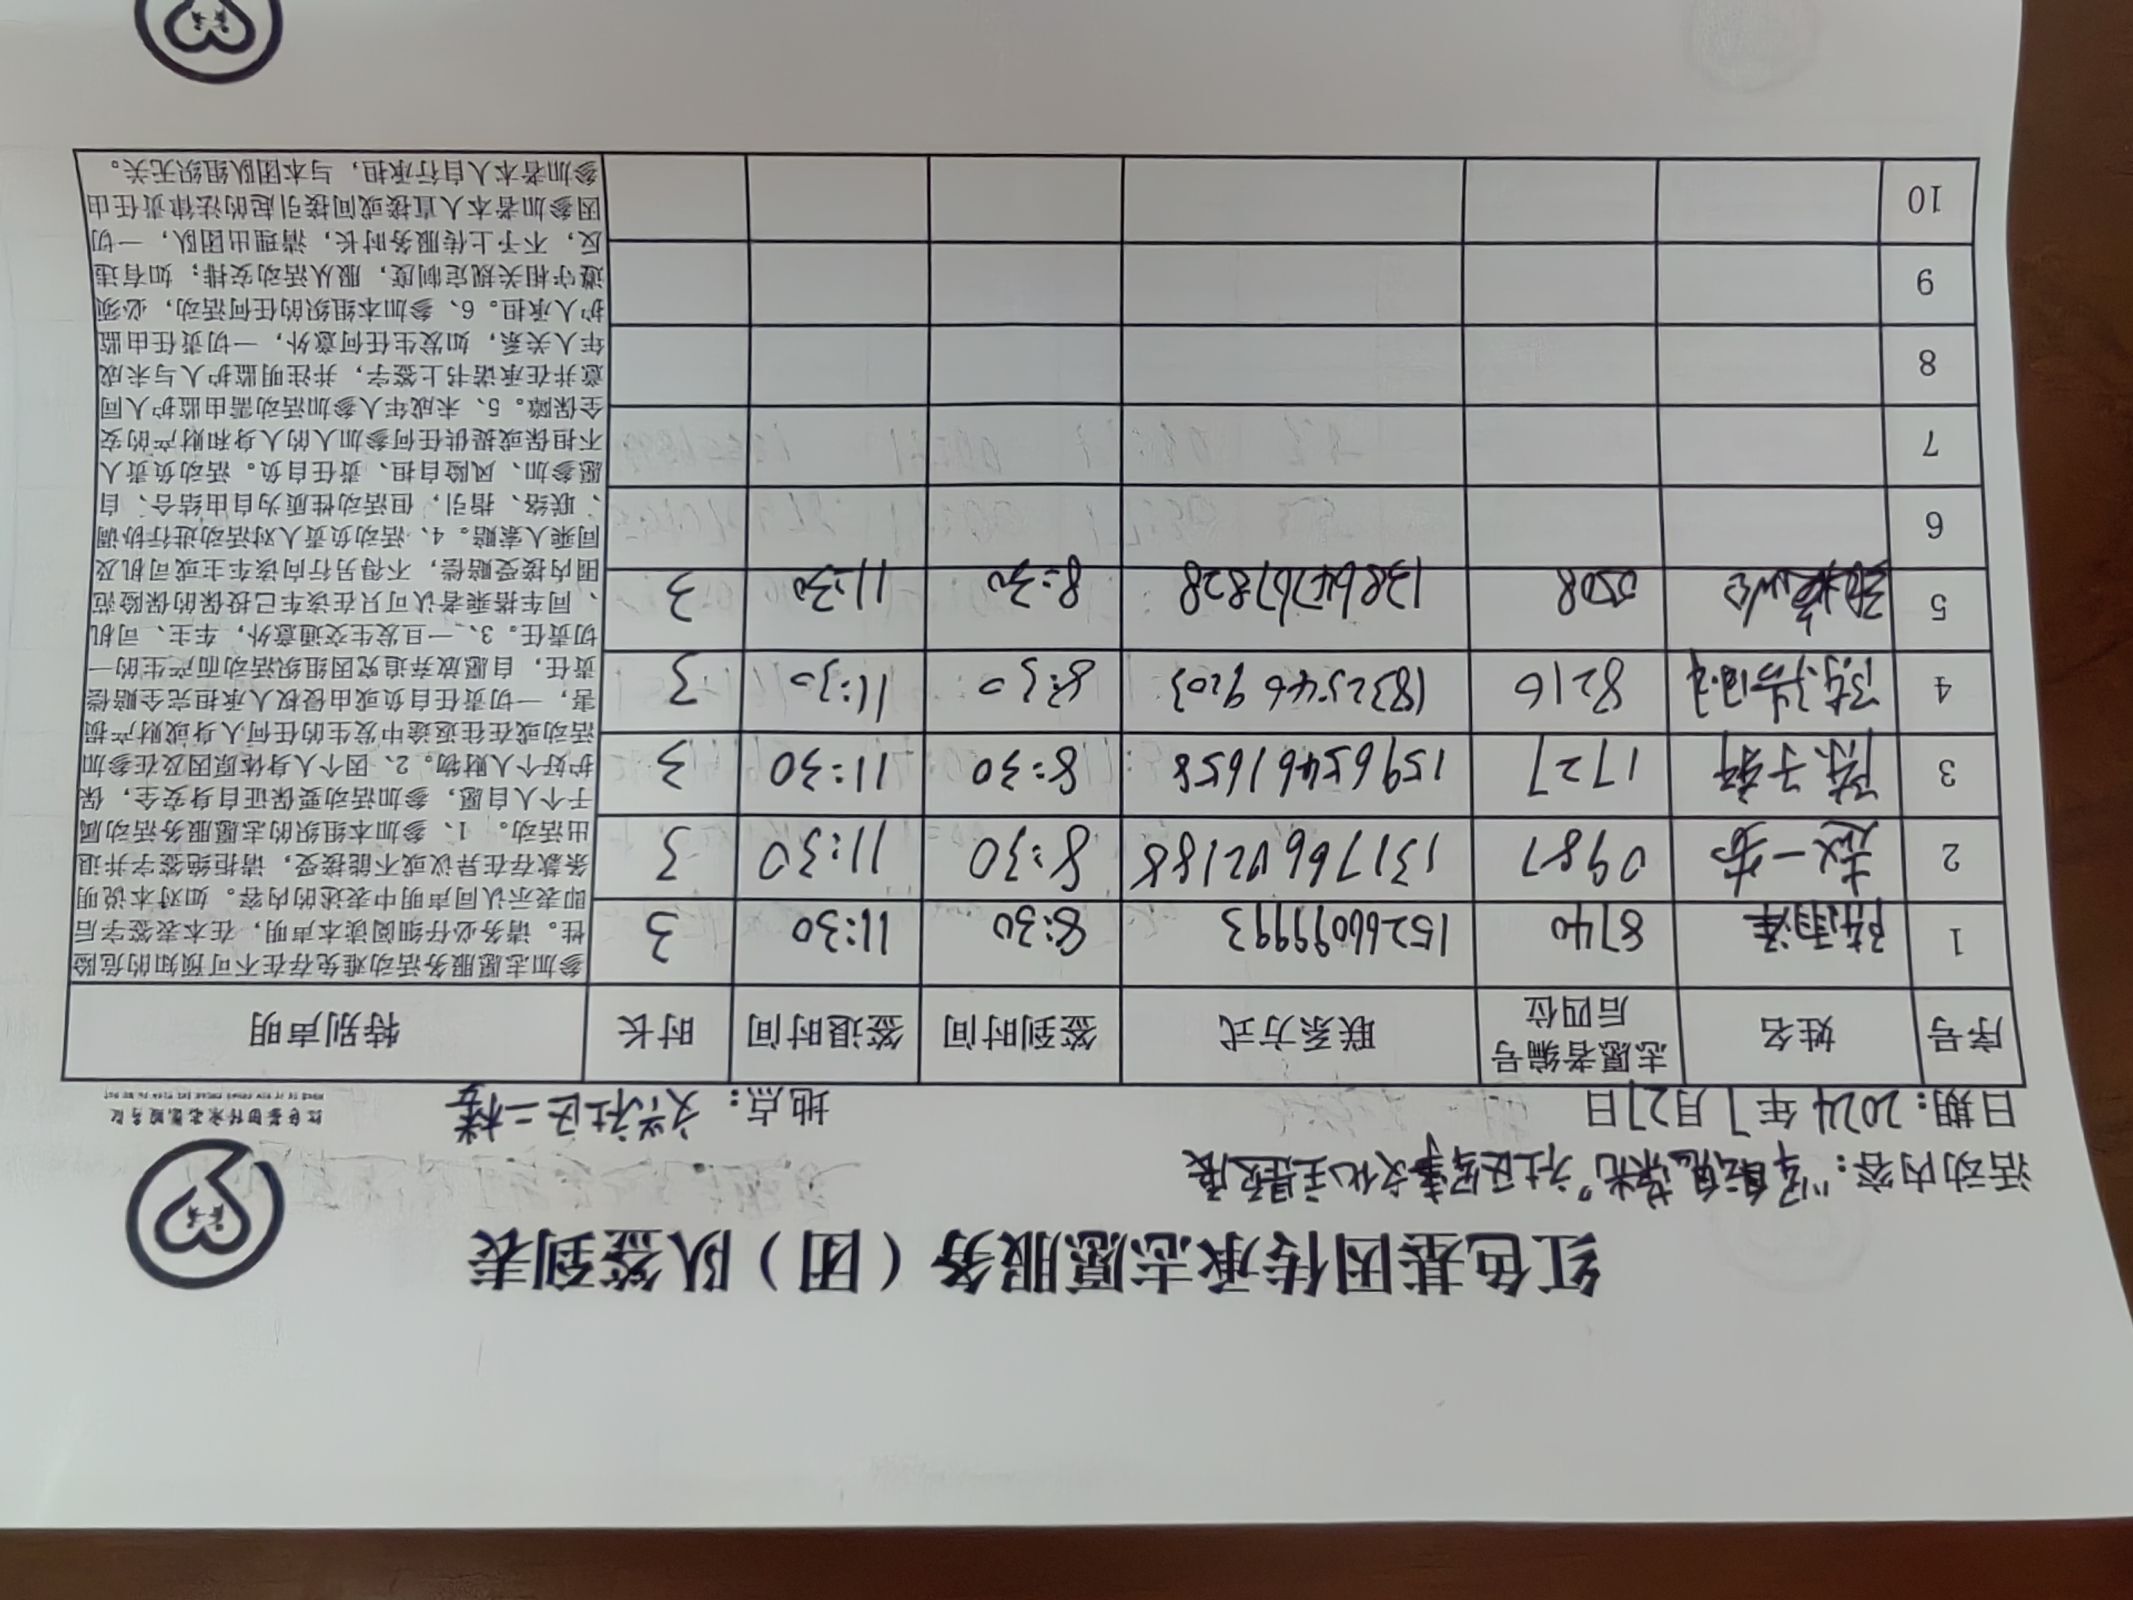 红色基因传承志愿服务（团）队签到表
活动内容：社区军事文化主题展
日期：2024年7月27日 地点：文兴社区二楼
红色基因传承志愿服务队
序号 姓名 志愿者编号后四位 联系方式 签到时间 签退时间 时长 特别声明
1 陈羽泽 8740 15266099993 8:30 11:30 3
2 赵一诺 0987 13176602188 8:30 11:30 3
3 陈子轩 1727 15965461658 8:30 11:30 3
4 8216 18325469203 8:30 11:30 3
5 5508 13864767828 8:30 11:30 3
6
7
8
9
10
参加志愿服务活动难免存在不可预知的危险
性。请务必仔细阅读本声明，在本表签字后
即表示认同声明中表述的内容。如对本说明
条款存在异议或不能接受，请拒绝签字并退
出活动。 1、参加本组织的志愿服务活动属
于个人自愿，参加活动要保证自身安全，保
护好个人财物。2、因个人身体原因及在参加
活动或在往返途中发生的任何人身或财产损
害，一切责任自负或由侵权人承担完全赔偿
责任，自愿放弃追究因组织活动而产生的一
切责任。3、一旦发生交通意外，车主、司机
、同车搭乘者认可只在该车已投保的保险范
围内接受赔偿，不得另行向该车主或司机及
同乘人索赔。4、活动负责人对活动进行协调
、联络、指引，但活动性质为自由结合、自
愿参加、风险自担、责任自负。活动负责人
不担保或提供任何参加人的人身和财产的安
全保障。5、未成年人参加活动需由监护人同
意并在承诺书上签字，并注明监护人与未成
年人关系，如发生任何意外，一切责任由监
护人承担。6、参加本组织的任何活动，必须
遵守相关规定制度，服从活动安排；如有违
反，不予上传服务时长，清理出团队，一切
因参加者本人直接或间接引起的法律责任由
参加者本人自行承担，与本团队组织无关。